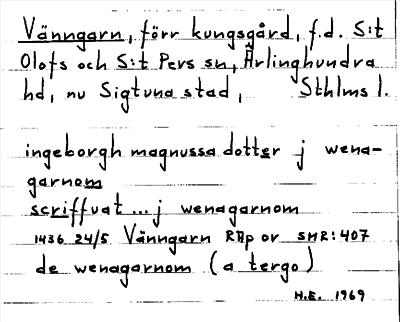 Vänngarn, förr kungsgård, f.d. S:t
Olofs och S:t Pers sn, Ärlinghundra
hd, nu Sigtuna stad, Sthlms l.
ingeborgh magnussa dotter j wena-
garnom
scriffuat ... j wenagarnom
1436 24/5 Vänngarn RAp or SMR:407
de wenagarnom (a tergo)
H.E. 1969